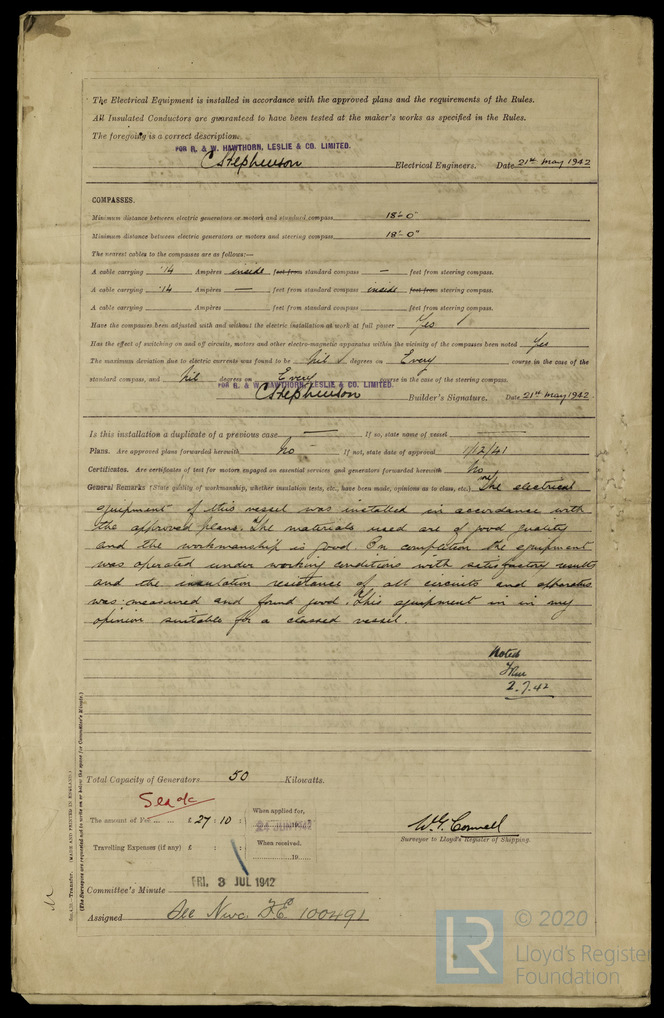 The Electrical Equipment is installed in accordance with the approved plans and the requirements of the Rules.
All Insulated Conductors are guaranteed to have been tested at the maker's works as specified in the Rules.
The foregoing is a correct description.
FOR R. & W. HAWTHORN, LESLIE & CO. LIMITED.
C Stephenson Electrical Engineers. Date 21st May 1942
COMPASSES.
Minimum distance between electric generators or motors and standard compass 18'-0"
Minimum distance between electric generators or motors and steering compass 18'-0"
The nearest cables to the compasses are as follows:—
A cable carrying ·14 Ampères inside feet from standard compass — feet from steering compass.
A cable carrying ·14 Ampères — feet from standard compass inside feet from steering compass.
A cable carrying Ampères feet from standard compass feet from steering compass.
Have the compasses been adjusted with and without the electric installation at work at full power Yes
Has the effect of switching on and off circuits, motors and other electro-magnetic apparatus within the vicinity of the compasses been noted Yes
The maximum deviation due to electric currents was found to be Nil degrees on Every course in the case of the
standard compass, and Nil degrees on Every course in the case of the steering compass.
FOR R. & W. HAWTHORN, LESLIE & CO. LIMITED.
C Stephenson Builder's Signature. Date 21st May 1942.
Is this installation a duplicate of a previous case — If so, state name of vessel —
Plans. Are approved plans forwarded herewith No - If not, state date of approval 1/12/41
Certificates. Are certificates of test for motors engaged on essential services and generators forwarded herewith No
General Remarks (State quality of workmanship, whether insulation tests, etc., have been made, opinions as to class, etc.) The electrical
equipment of this vessel was installed in accordance with
the approved plans. The materials used are of good quality
and the workmanship is good. On completion the equipment
was operated under working conditions with satisfactory results
and the insulation resistance of all circuits and apparatus
was measured and found good. This equipment in in my
opinion suitable for a classed vessel.
Noted
2.7.42
Total Capacity of Generators 50 Kilowatts.
The amount of Fee ... ... £ 27 : 10 : When applied for,
24 JUN 1942
Travelling Expenses (if any) £ : : When received.
19
W. G. Cornwell
Surveyor to Lloyd's Register of Shipping.
Committee's Minute FRI. 3 JUL 1942
Assigned See Nwc. F.E. 100491
Transfer. (MADE AND PRINTED IN ENGLAND.)
(The Surveyors are requested not to write on or below the space for Committee's Minute.)
LR
© 2020
Lloyd's Register
Foundation